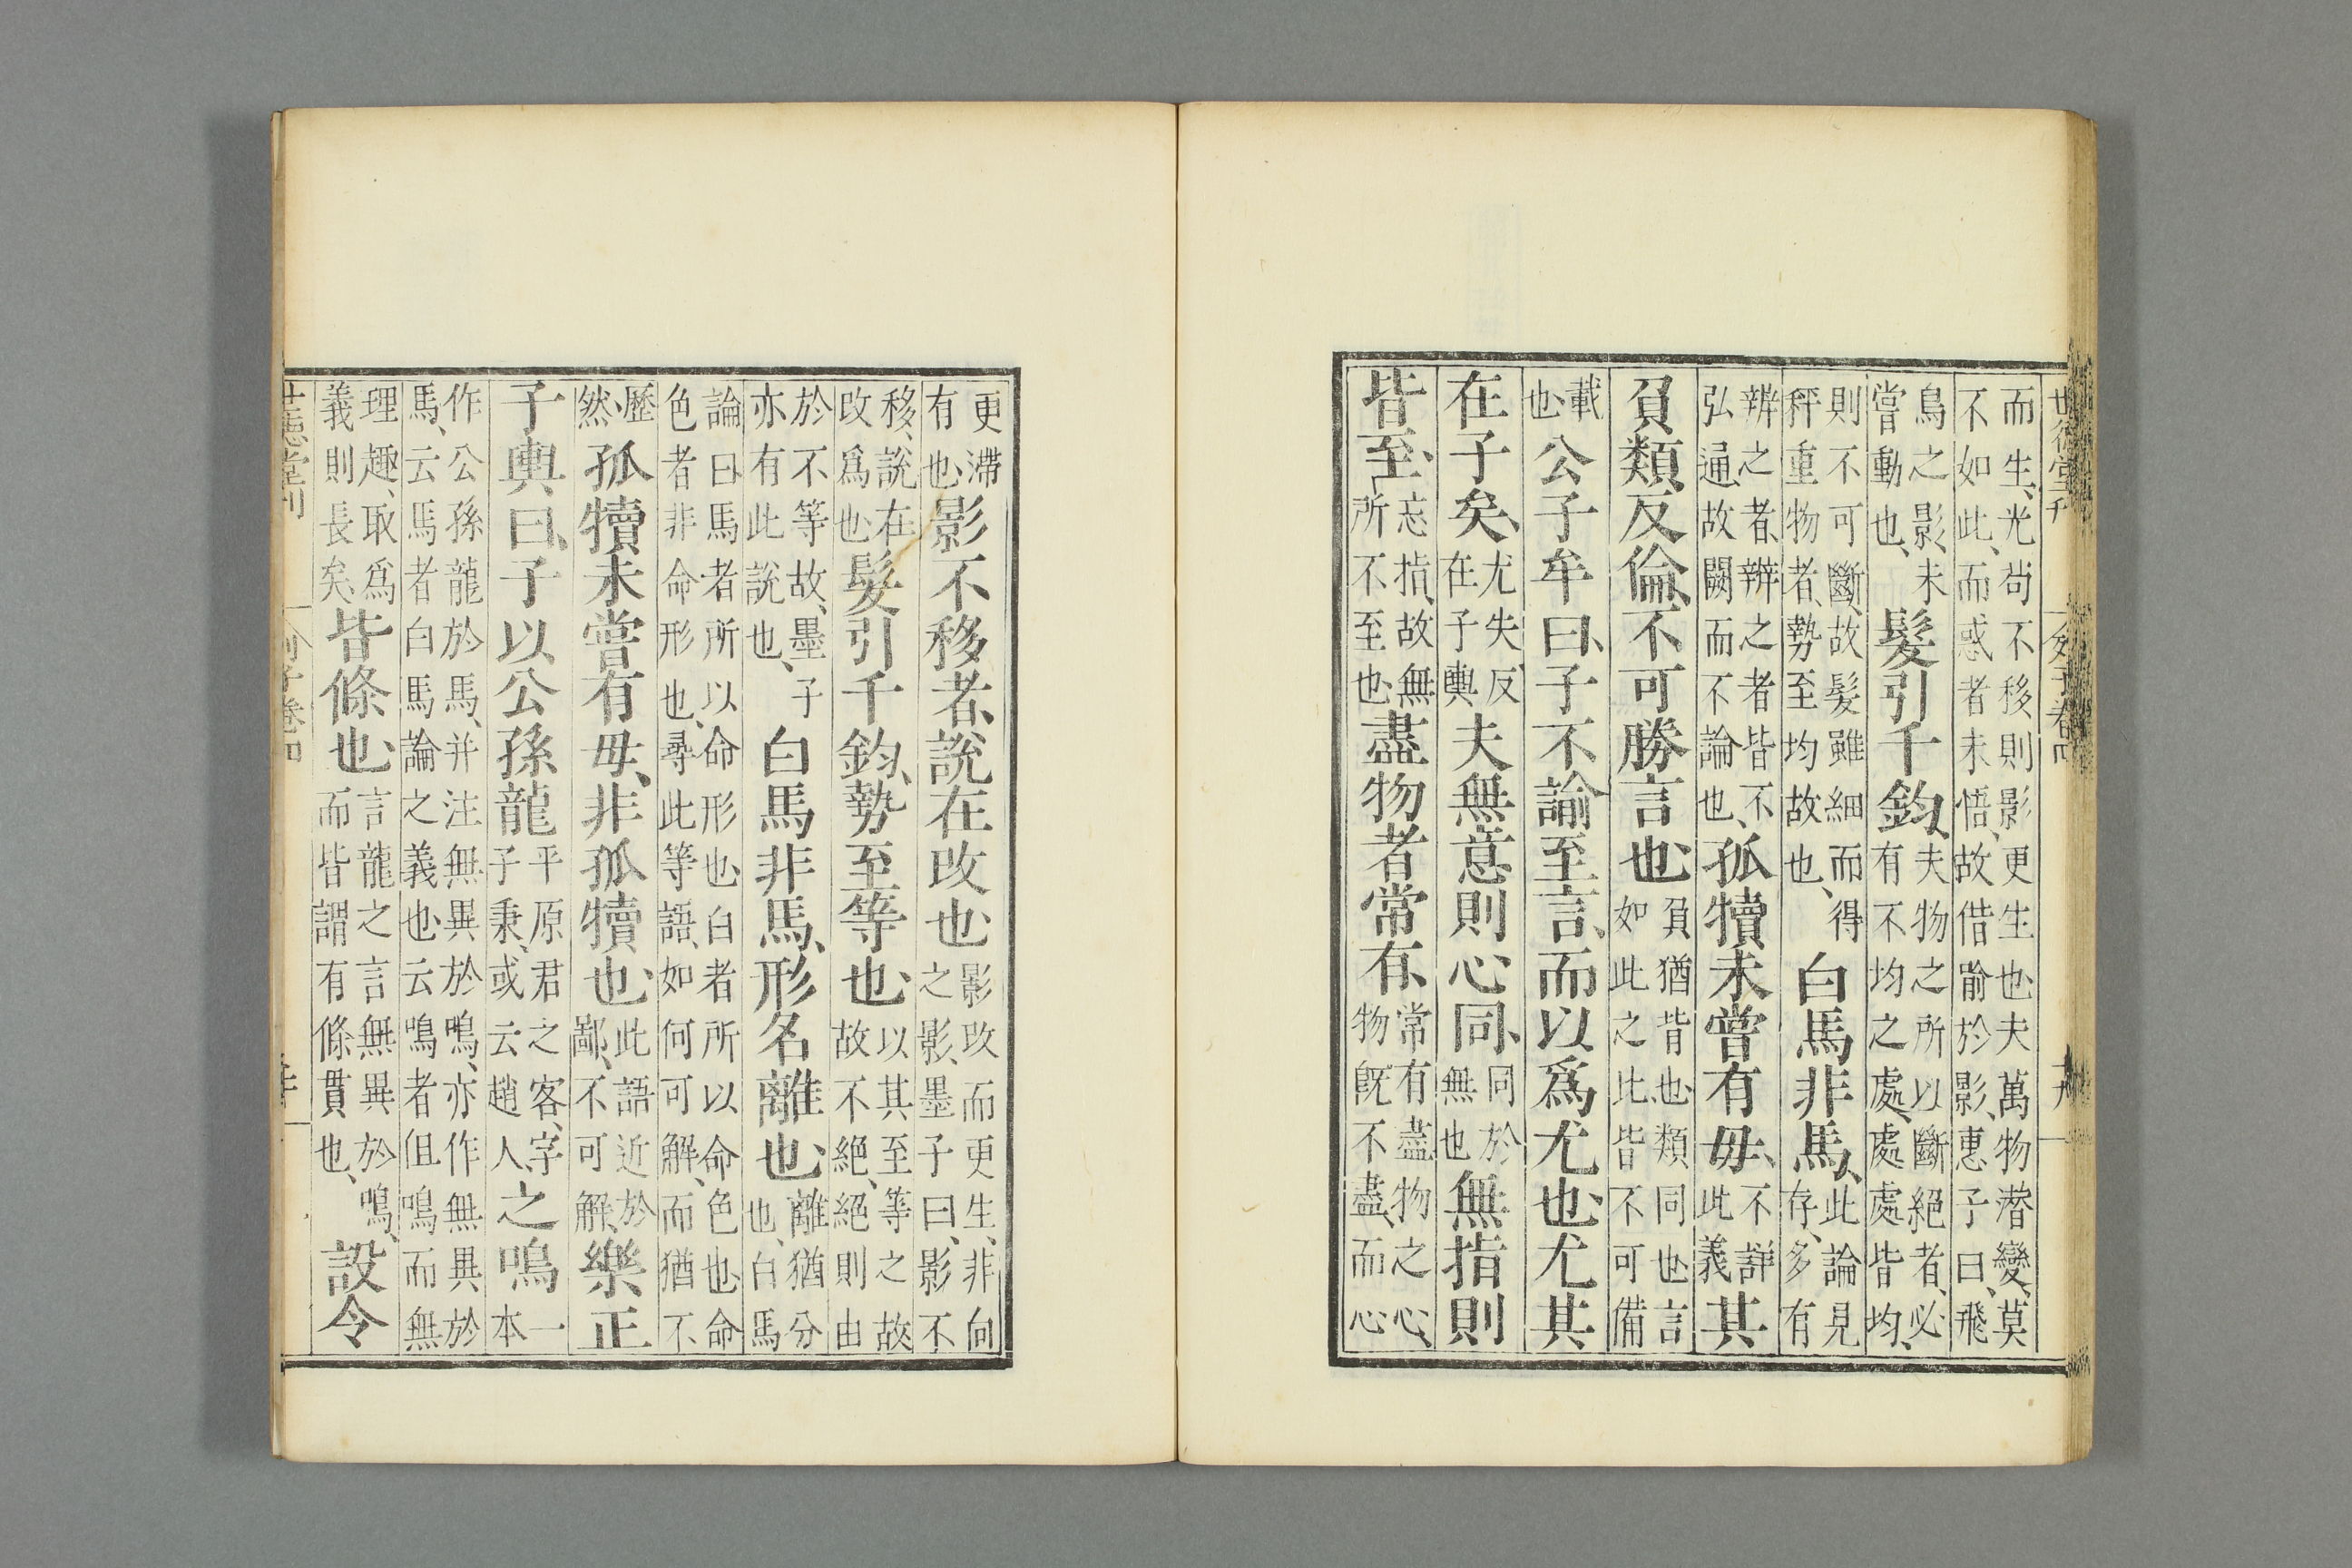 世德堂刊 列子卷四 十九
而生、光尚不移、則影更生也、夫萬物潛變、莫
不如此、而惑者未悟、故借喻於影、惠子曰、飛
鳥之影、未嘗動也、髮引千鈞、夫物之所以斷絕者、必有不均之處、處處皆均、
則不可斷、故髮雖細而得秤重物者、勢至均故也、白馬非馬、此論見存、多有
辨之者、辨之者皆不弘通、故闕而不論也、孤犢未嘗有母、不詳此義其
負類、反倫、不可勝言也、負猶背也、類同也、言如此之比皆不可備
載也、公子牟曰、子不諭至言、而以爲尤也、尤其
在子矣、尤失反在子輿夫無意則心同、同於無也無指則
皆至、忘指、故無所不至也、盡物者常有、常有盡物之心、物旣不盡、而心
更滯有也、影不移者、說在改也、影改而更生、非向之影、墨子曰、影不
移、說在改爲也、髮引千鈞、勢至等也、以其至等之故故不絕、絕則由
於不等故、墨子亦有此說也、白馬非馬、形名離也、離猶分也、白馬
論曰馬者所以命形也、白者所以命色也、命
色者非命形也、尋此等語、如何可解、而猶不
歷然、孤犢未嘗有母、非孤犢也、此語近於鄙、不可解、樂正
子輿曰、子以公孫龍平原君之客、字子秉、或云趙人、之鳴一本
作公孫龍於馬、并注無異於鳴、亦作無異於
馬、云馬者白馬論之義也、云鳴者但鳴而無
理趣、取爲義則長矣、皆條也、言龍之言無異於鳴、而皆謂有條貫也、設令
世德堂刊 列子卷四